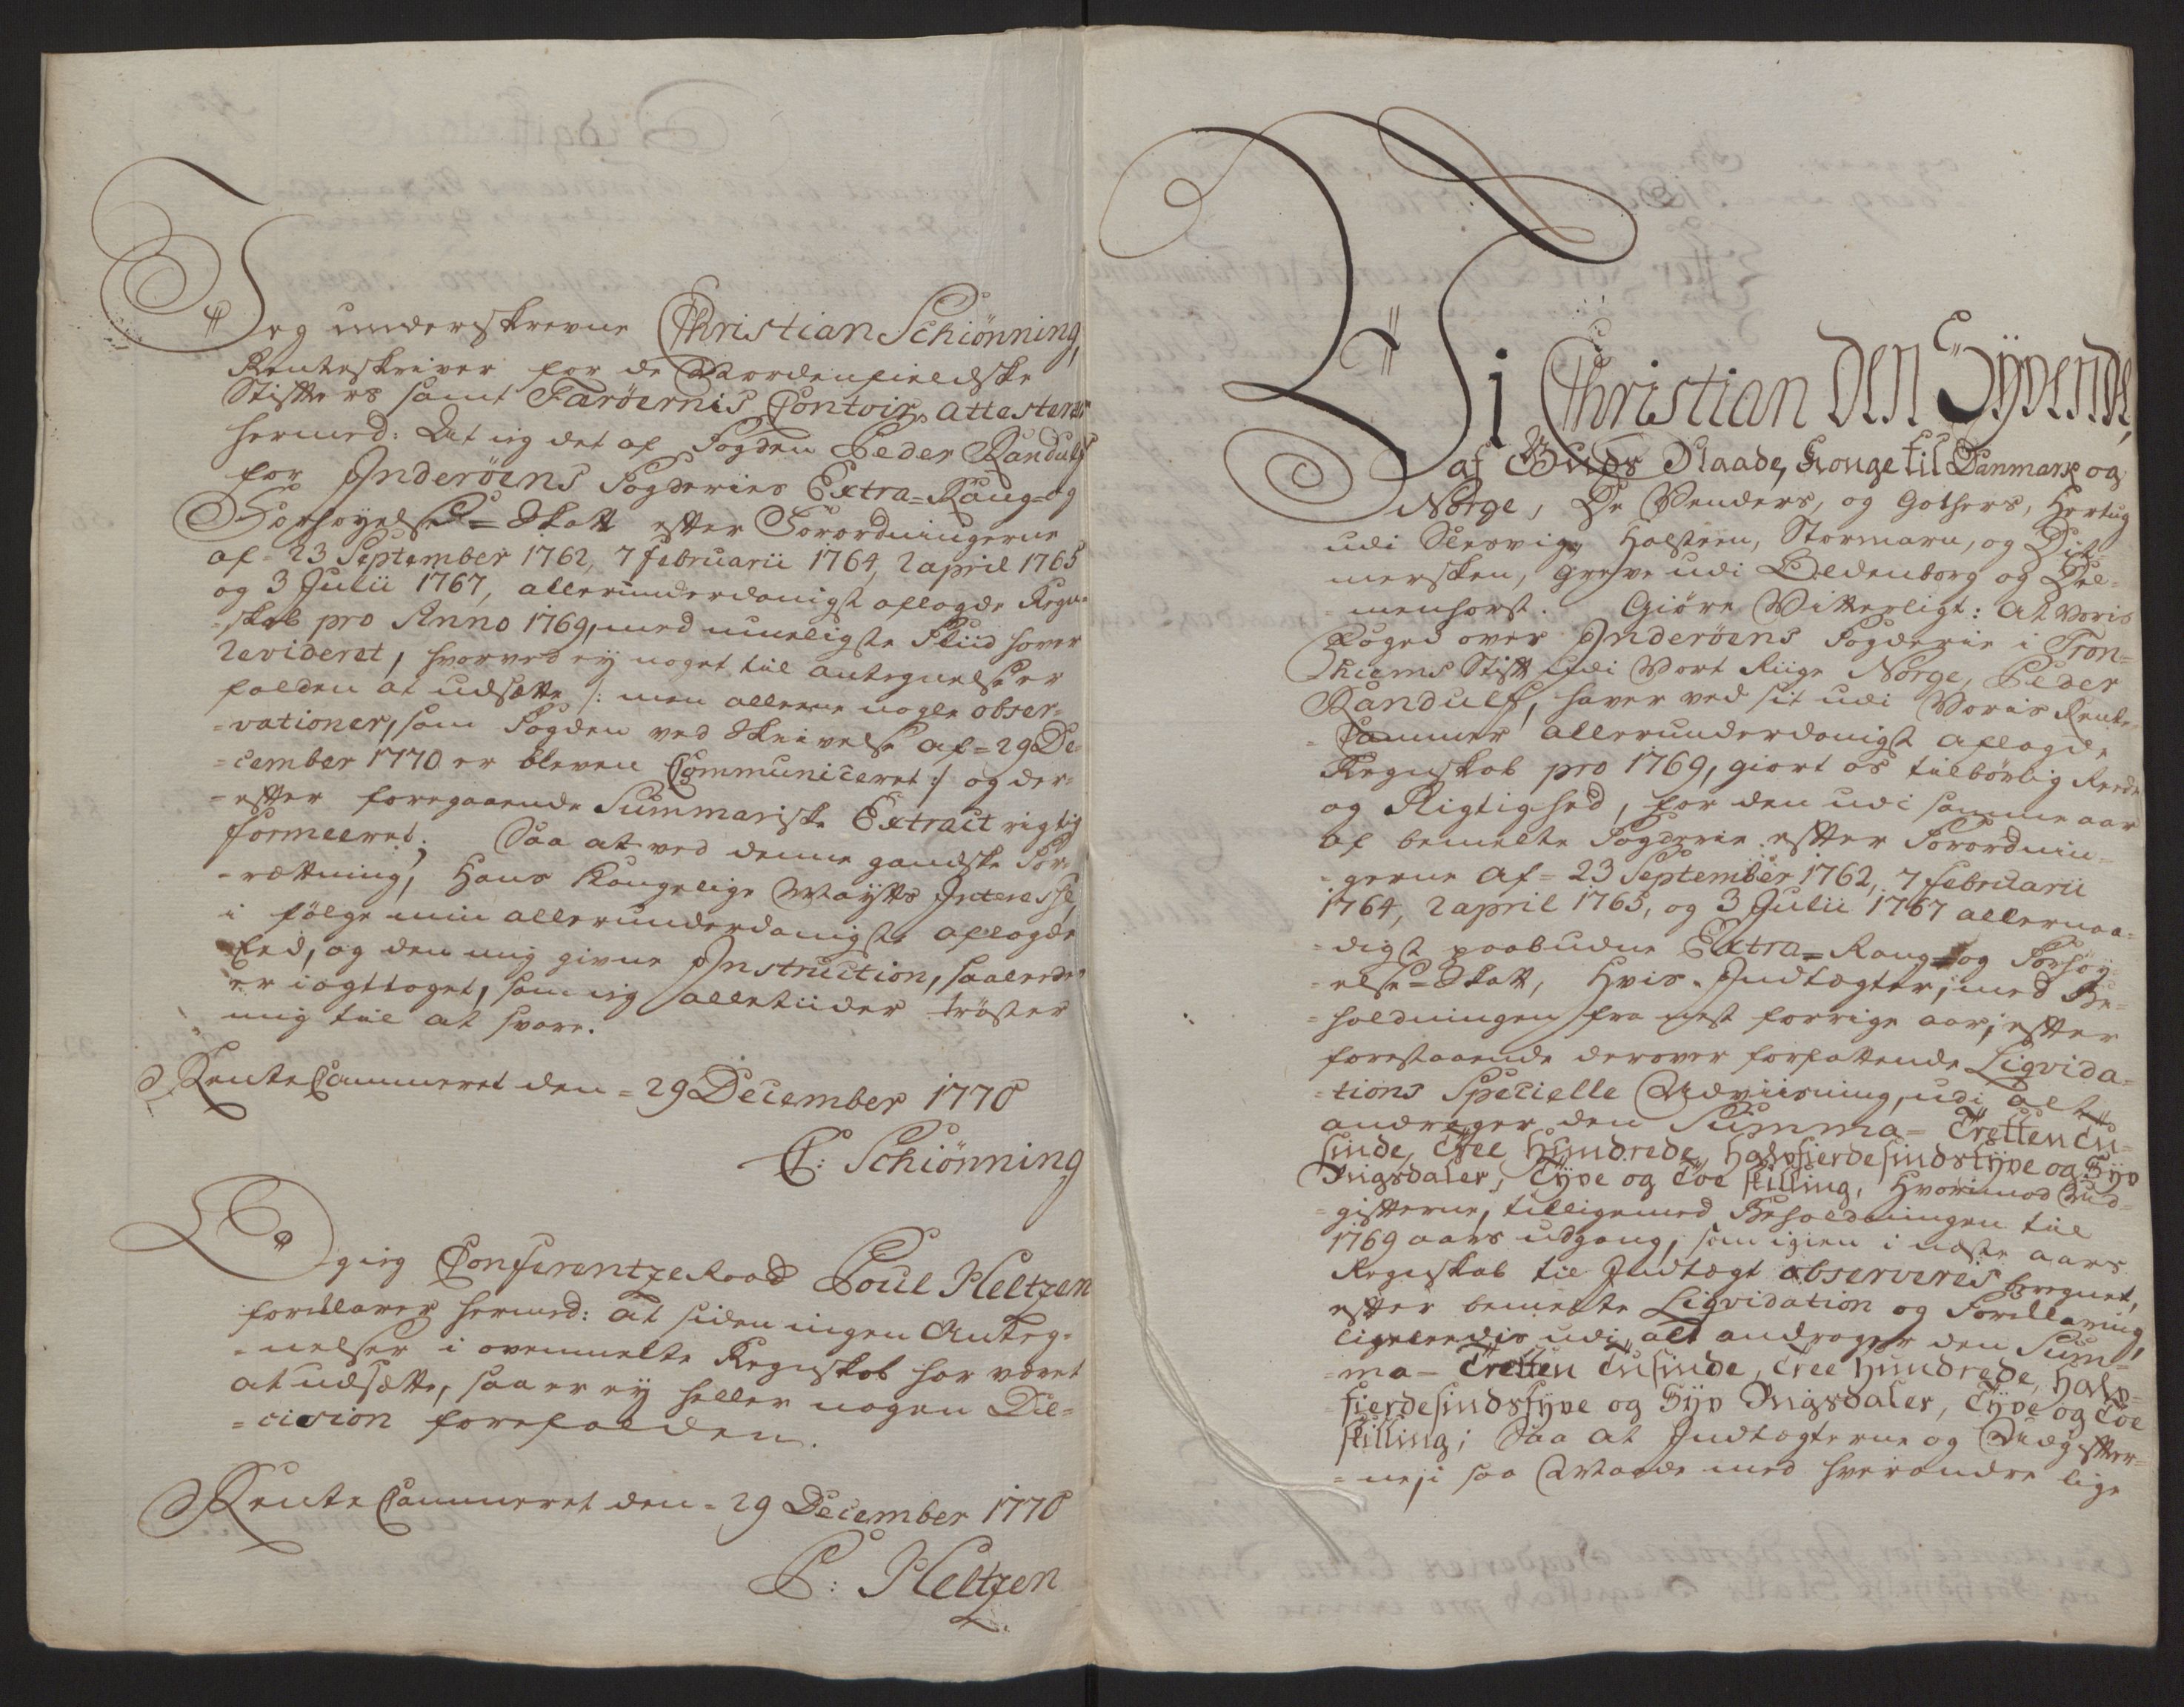 Jeg underskrevne Christian Schiönning,
Renteskriver for de Nordenfieldske
Stifter samt Færöernis Contoir, attesterer
hermed: At ieg det af Fogden Peder Randulf
for Inderöens Fogderies Extra-Rang- og
Forhöyelse-Skatt efter Forordningerne
af 23 September 1762, 7 februarii 1764, 2 april 1765
og 3 Julii 1767, allerunderdanigst aflagde Regn-
-skab pro Anno 1769, med mueligste Fliid haver
revideret, hvorved ey noget til antegnelse er
falden at udsætte /: men alleene nogle obser-
-vationer, som Fogden ved Skrivelse af 29 De-
-cember 1770 er bleven Communiceret :/ og der-
-efter foregaaende Summariske Extract rigtig
formeeret; Saa at ved denne gandske For-
-rættning, Hans Kongelige Mayts Interesse,
i fölge min allerunderdanigste aflagde
Eed, og den mig givne Instruction, saaledes
er iagttaget, som ieg alletiider tröster
mig til at svare.
RenteCammeret den 29 December 1770
C: Schiönning
Og ieg ConferentzeRaad Poul Heltzen
forklarer hermed: at siden ingen Anteg-
-nelser i ovenmelte Regnskab har været
at udsætte, saa er ey heller nogen De-
-cision forefalden.
RenteCammeret den 29 December 1770
P: Heltzen
Vi Christian den Syvende,
af Guds Naade, Konge til Danmark og
Norge, De Venders, og Gothers, Hertug
udi Slesvig, Holsteen, Stormarn, og Dit-
mersken, Greve udi Oldenborg og Del-
-menhorst. Giöre Vitterligt: At Voris
Foged over Inderöens Fogderie i Tron-
Thiems Stift udi Vort Riige Norge, Peder
Randulf, haver ved sit udi Voris Rente-
-Cammer allerunderdanigst aflagde
Regnskab pro 1769, giort os tilbörlig Reede
og Rigtighed, for den udi samme aar
af bemelte Fogderie efter Forordnin-
-gerne af 23 September 1762, 7 februarii
1764, 2 april 1765, og 3 Julii 1767 allernaa-
-digst paabudne Extra-Rang- og Forhöy-
-else-Skatt, Hvis Indtægter, med Be-
-holdningen fra nest forrige aar, efter
forestaaende derover forfattende Liqvida-
-tions Specielle Udviisning, udi alt
andrager den Summa - Tretten Tu-
sinde, Tree Hundrede, Halvfierdesindstyve og Syv
Rigsdaler, Tyve og Toe skilling, Hvorimod Ud-
-gifterne, tilligemed Beholdningen til
1769 aars udgang, som igien i næste aars
Regnskab til Indtægt observeres beregnet,
efter bemelte Liqvidation og Forklaring,
ligeleedis udi alt andrager den Sum-
-ma - Tretten Tusinde, Tree Hundrede, Halv-
fierdesindstyve og Syv Rigsdaler, Tyve og Toe
skilling; Saa at Indtægterne og Udgifter-
-ne, i saa Maade med hverandre lige